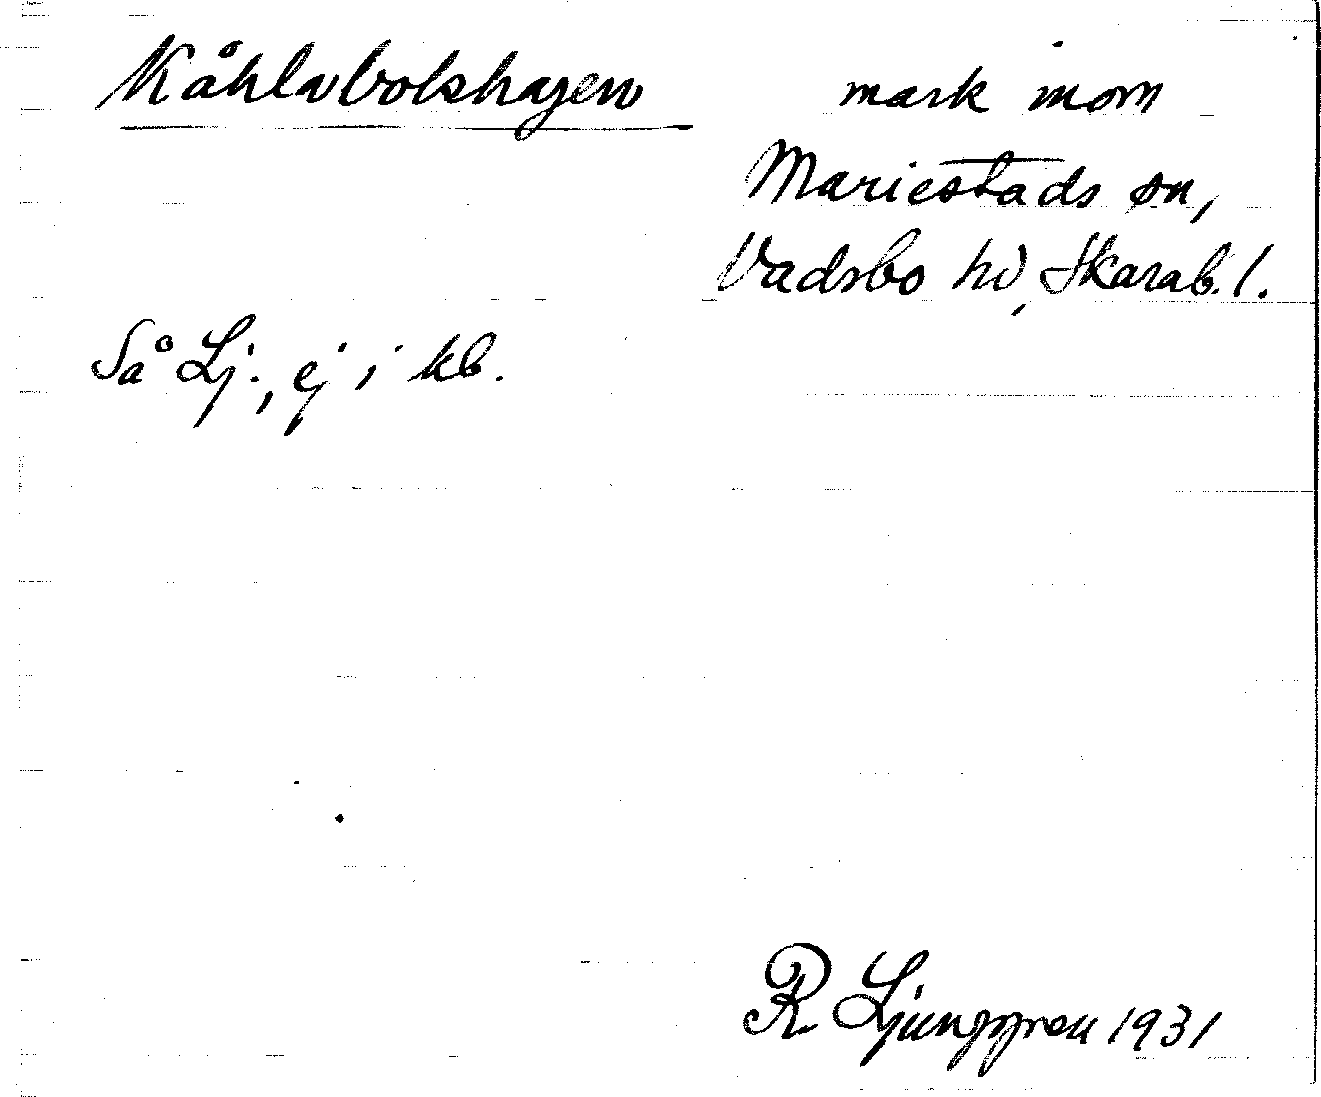 Kåhlabolshagen
mark inom
Mariestads sn,
Vadsbo hd, Skarab. l.
Så Lj., ej i kb.
R Ljunggren 1931